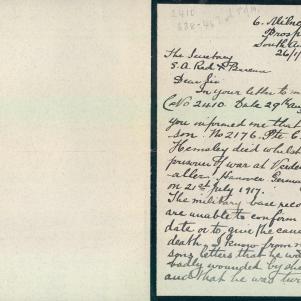 2410
6. Milne
Prosp
South Au
26/1/
The Secretary
S.A. Red X Bureau
Dear Sir
In your letter to m
(No 2410. Date 29th Aug
you informed me that
son. No 2176. Pte C.
Hemsley died whilst
prisoner of war at
aller, Hanover German
on 21st July 1917.
The military base reco
are unable to conform
date or to give the cau
death. I know from m
sons letters that he wa
badly wounded by she
and that he was two